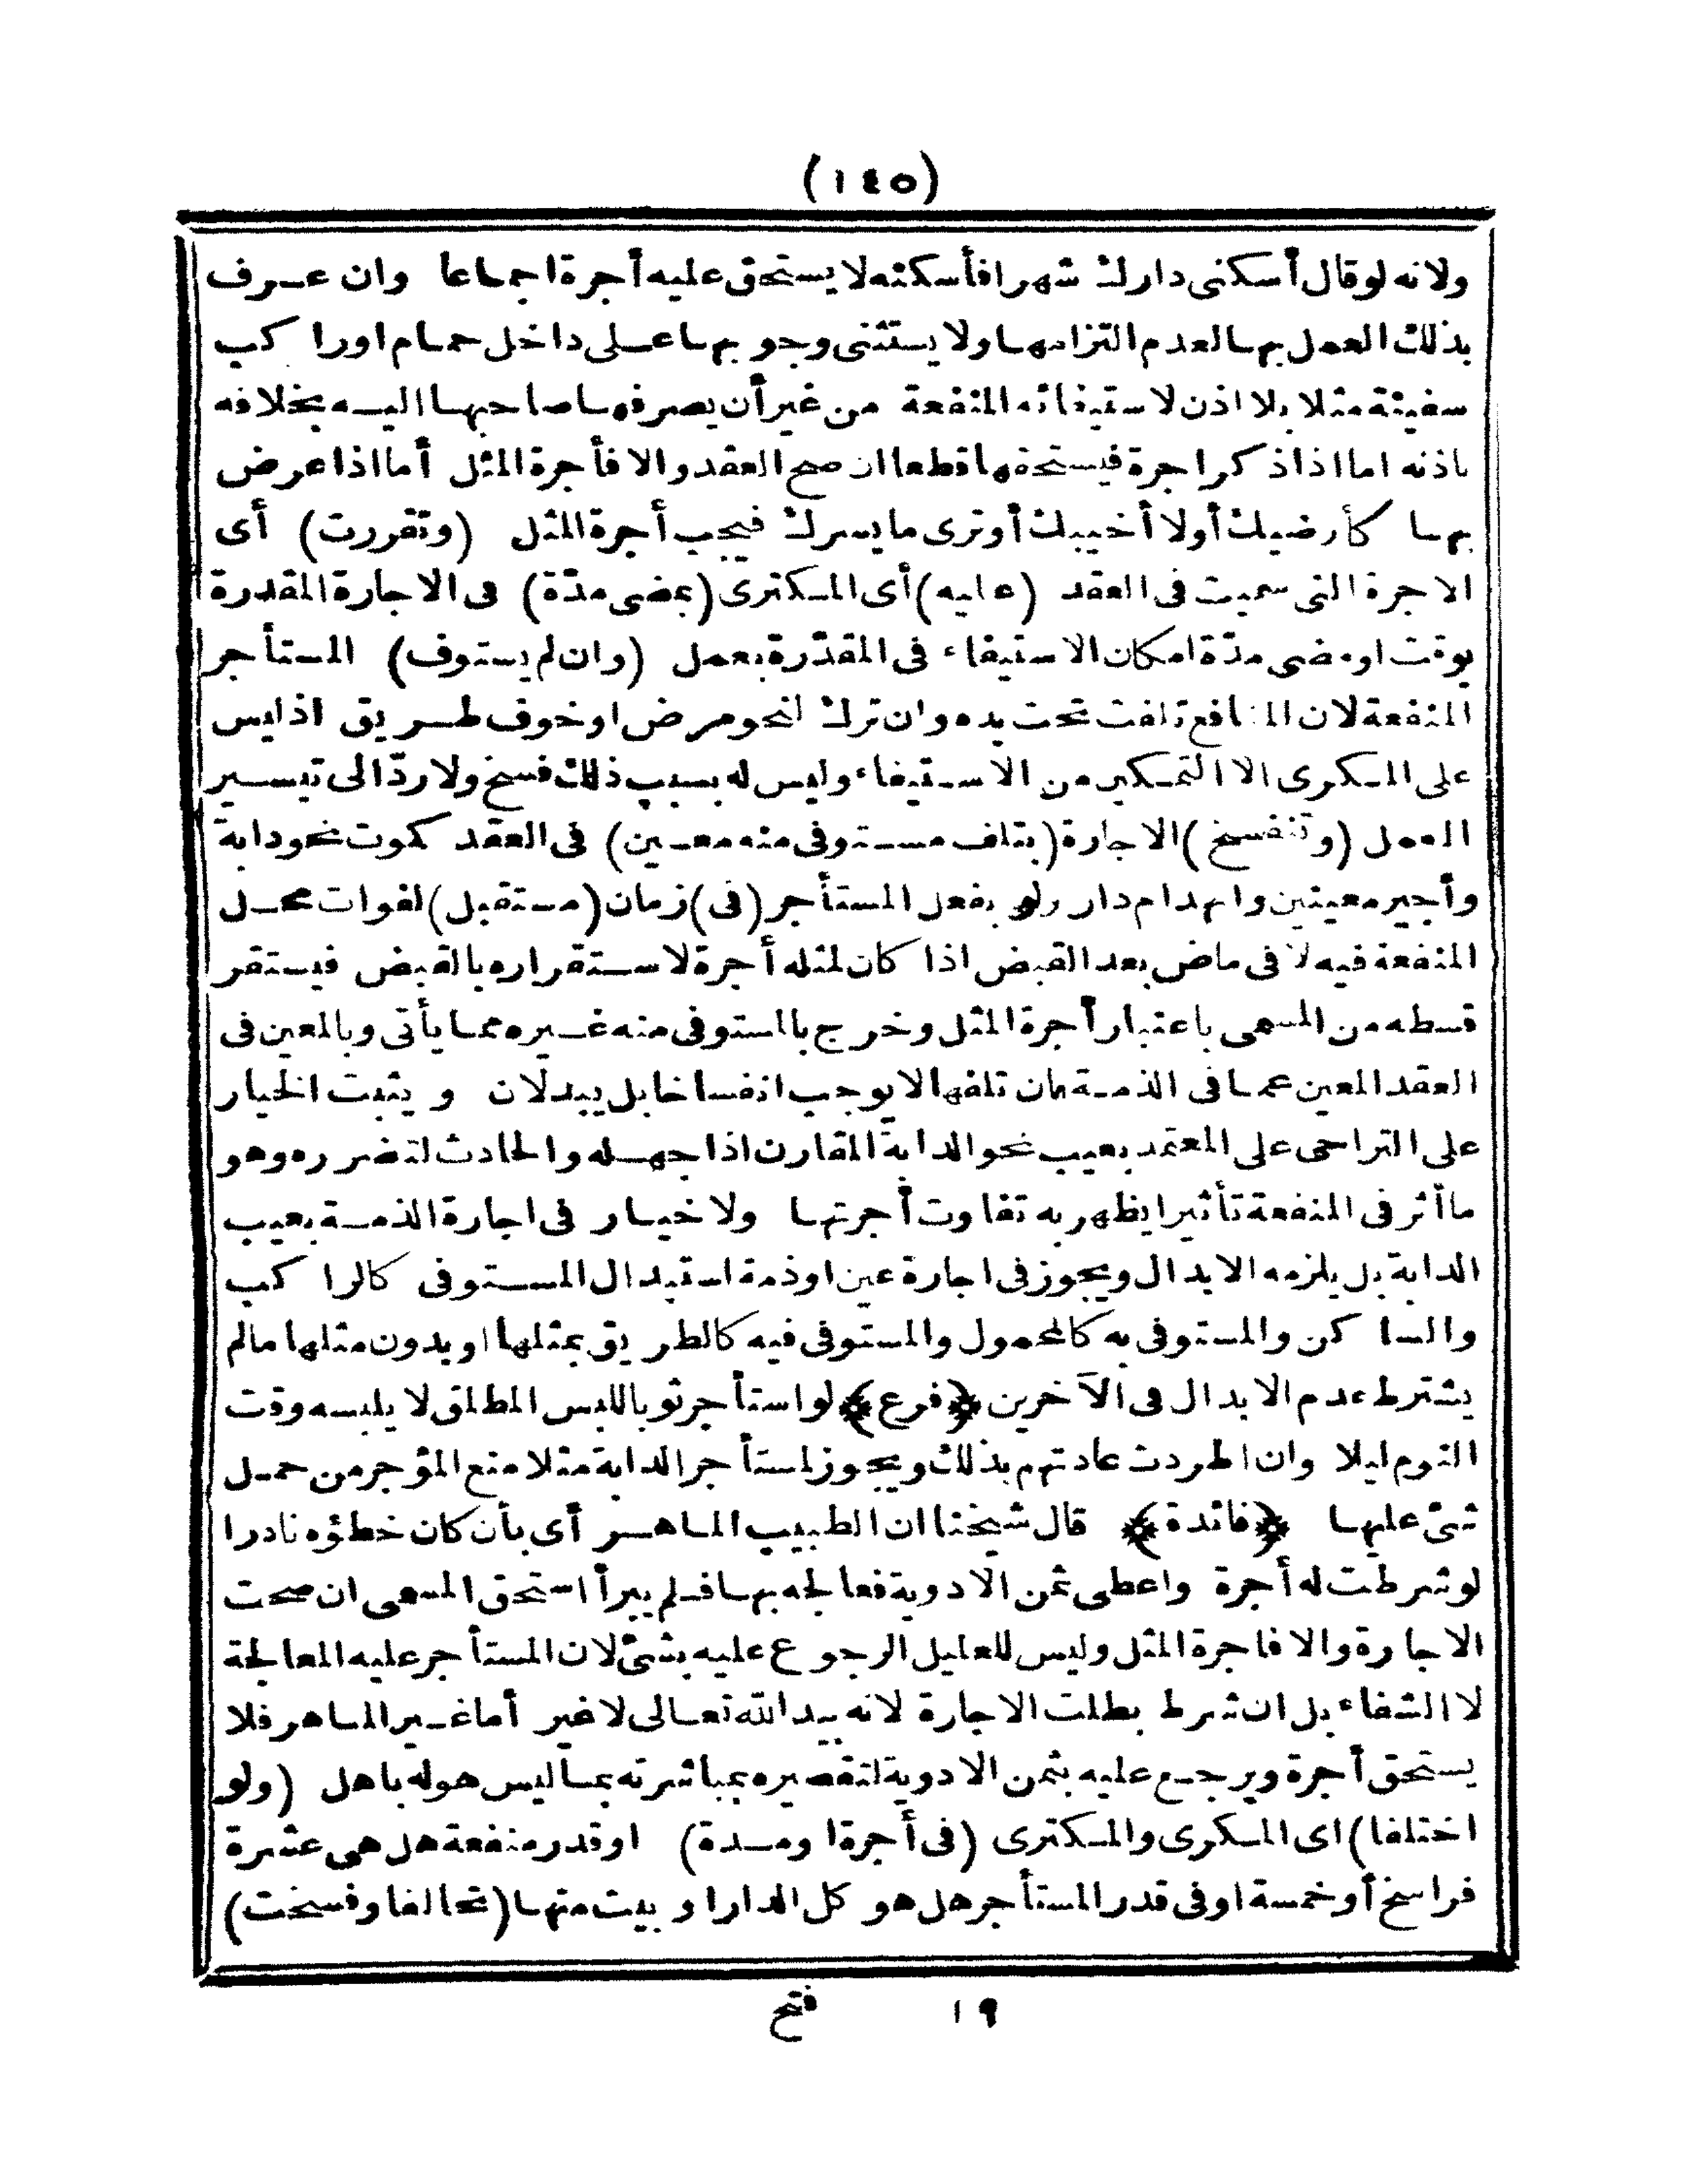 (١٤٥)
ولانه لو قال أسكنى دارك شهرا فأسكنه لا يستحق عليه أجرة اجماعا وان عرف
بذلك العمل بها لعدم التزامها ولا يستثنى وجوبها على داخل حمام او راكب
سفينة مثلا بلا اذن لاستيفائه المنفعة من غير أن يصرفها صاحبها اليه بخلافه
باذنه اما اذا ذكر اجرة فيستحقها قطعا ان صح العقد والا فأجرة المثل أما اذا عرض
بها كأرضيك أولا أخيبك أو ترى ما يسرك فيجب أجرة المثل (وتقررت) أى
الاجرة التى سميت فى العقد (عليه) أى المكترى (بمضى مدّة) فى الاجارة المقدرة
بوقت او مضى مدّة امكان الاستيفاء فى المقدّرة بعمل (وان لم يستوف) المستأجر
المنفعة لان المنافع تلفت تحت يده وان ترك لنحو مرض او خوف طريق اذ ليس
على المكرى الا التمكين من الاستيفاء وليس له بسبب ذلك فسخ ولا ردّ الى تيسير
العمل (وتنفسخ) الاجارة (بتلف مستوفى منه معين) فى العقد كموت نحو دابة
وأجير معينين وانهدام دار ولو بفعل المستأجر (فى) زمان (مستقبل) لفوات محل
المنفعة فيه لا فى ماض بعد القبض اذا كان لمثله أجرة لاستقراره بالقبض فيستقر
قسطه من المسمى باعتبار أجرة المثل وخرج بالمستوفى منه غيره مما يأتى وبالمعين فى
العقد المعين عما فى الذمة فان تلفها لا يوجب انفساخا بل يبدلان ويثبت الخيار
على التراخى على المعتمد بعيب نحو الدابة المقارن اذا جهله والحادث لتضرره وهو
ما أثر فى المنفعة تأثيرا يظهر به تفاوت أجرتها ولا خيار فى اجارة الذمة بعيب
الدابة بل يلزمه الابدال ويجوز فى اجارة عين او ذمة استبدال المستوفى كالراكب
والساكن والمستوفى به كالمحمول والمستوفى فيه كالطريق بمثلها او بدون مثلها ما لم
يشترط عدم الابدال فى الآخرين ﴿فرع﴾ لو استأجر ثوبا للبس المطلق لا يلبسه وقت
النوم ليلا وان اطردت عادتهم بذلك ويجوز لمستأجر الدابة مثلا منع المؤجر من حمل
شئ عليها ﴿فائدة﴾ قال شيخنا ان الطبيب الماهر أى بأن كان خطؤه نادرا
لو شرطت له أجرة واعطى ثمن الادوية فعالجه بها فلم يبرأ استحق المسمى ان صحت
الاجارة والا فاجرة المثل وليس للعليل الرجوع عليه بشئ لان المستأجر عليه المعالجة
لا الشفاء بل ان شرط بطلت الاجارة لانه بيد الله تعالى لا غير أما غير الماهر فلا
يستحق أجرة ويرجع عليه بثمن الادوية لتقصيره بمباشرته بما ليس هو له باهل (ولو
اختلفا) اى المكرى والمكترى (فى أجرة او مدة) او قدر منفعة هل هى عشرة
فراسخ أو خمسة او فى قدر المستأجر هل هو كل الدار او بيت منها (تحالفا وفسخت)
١٩ فتح